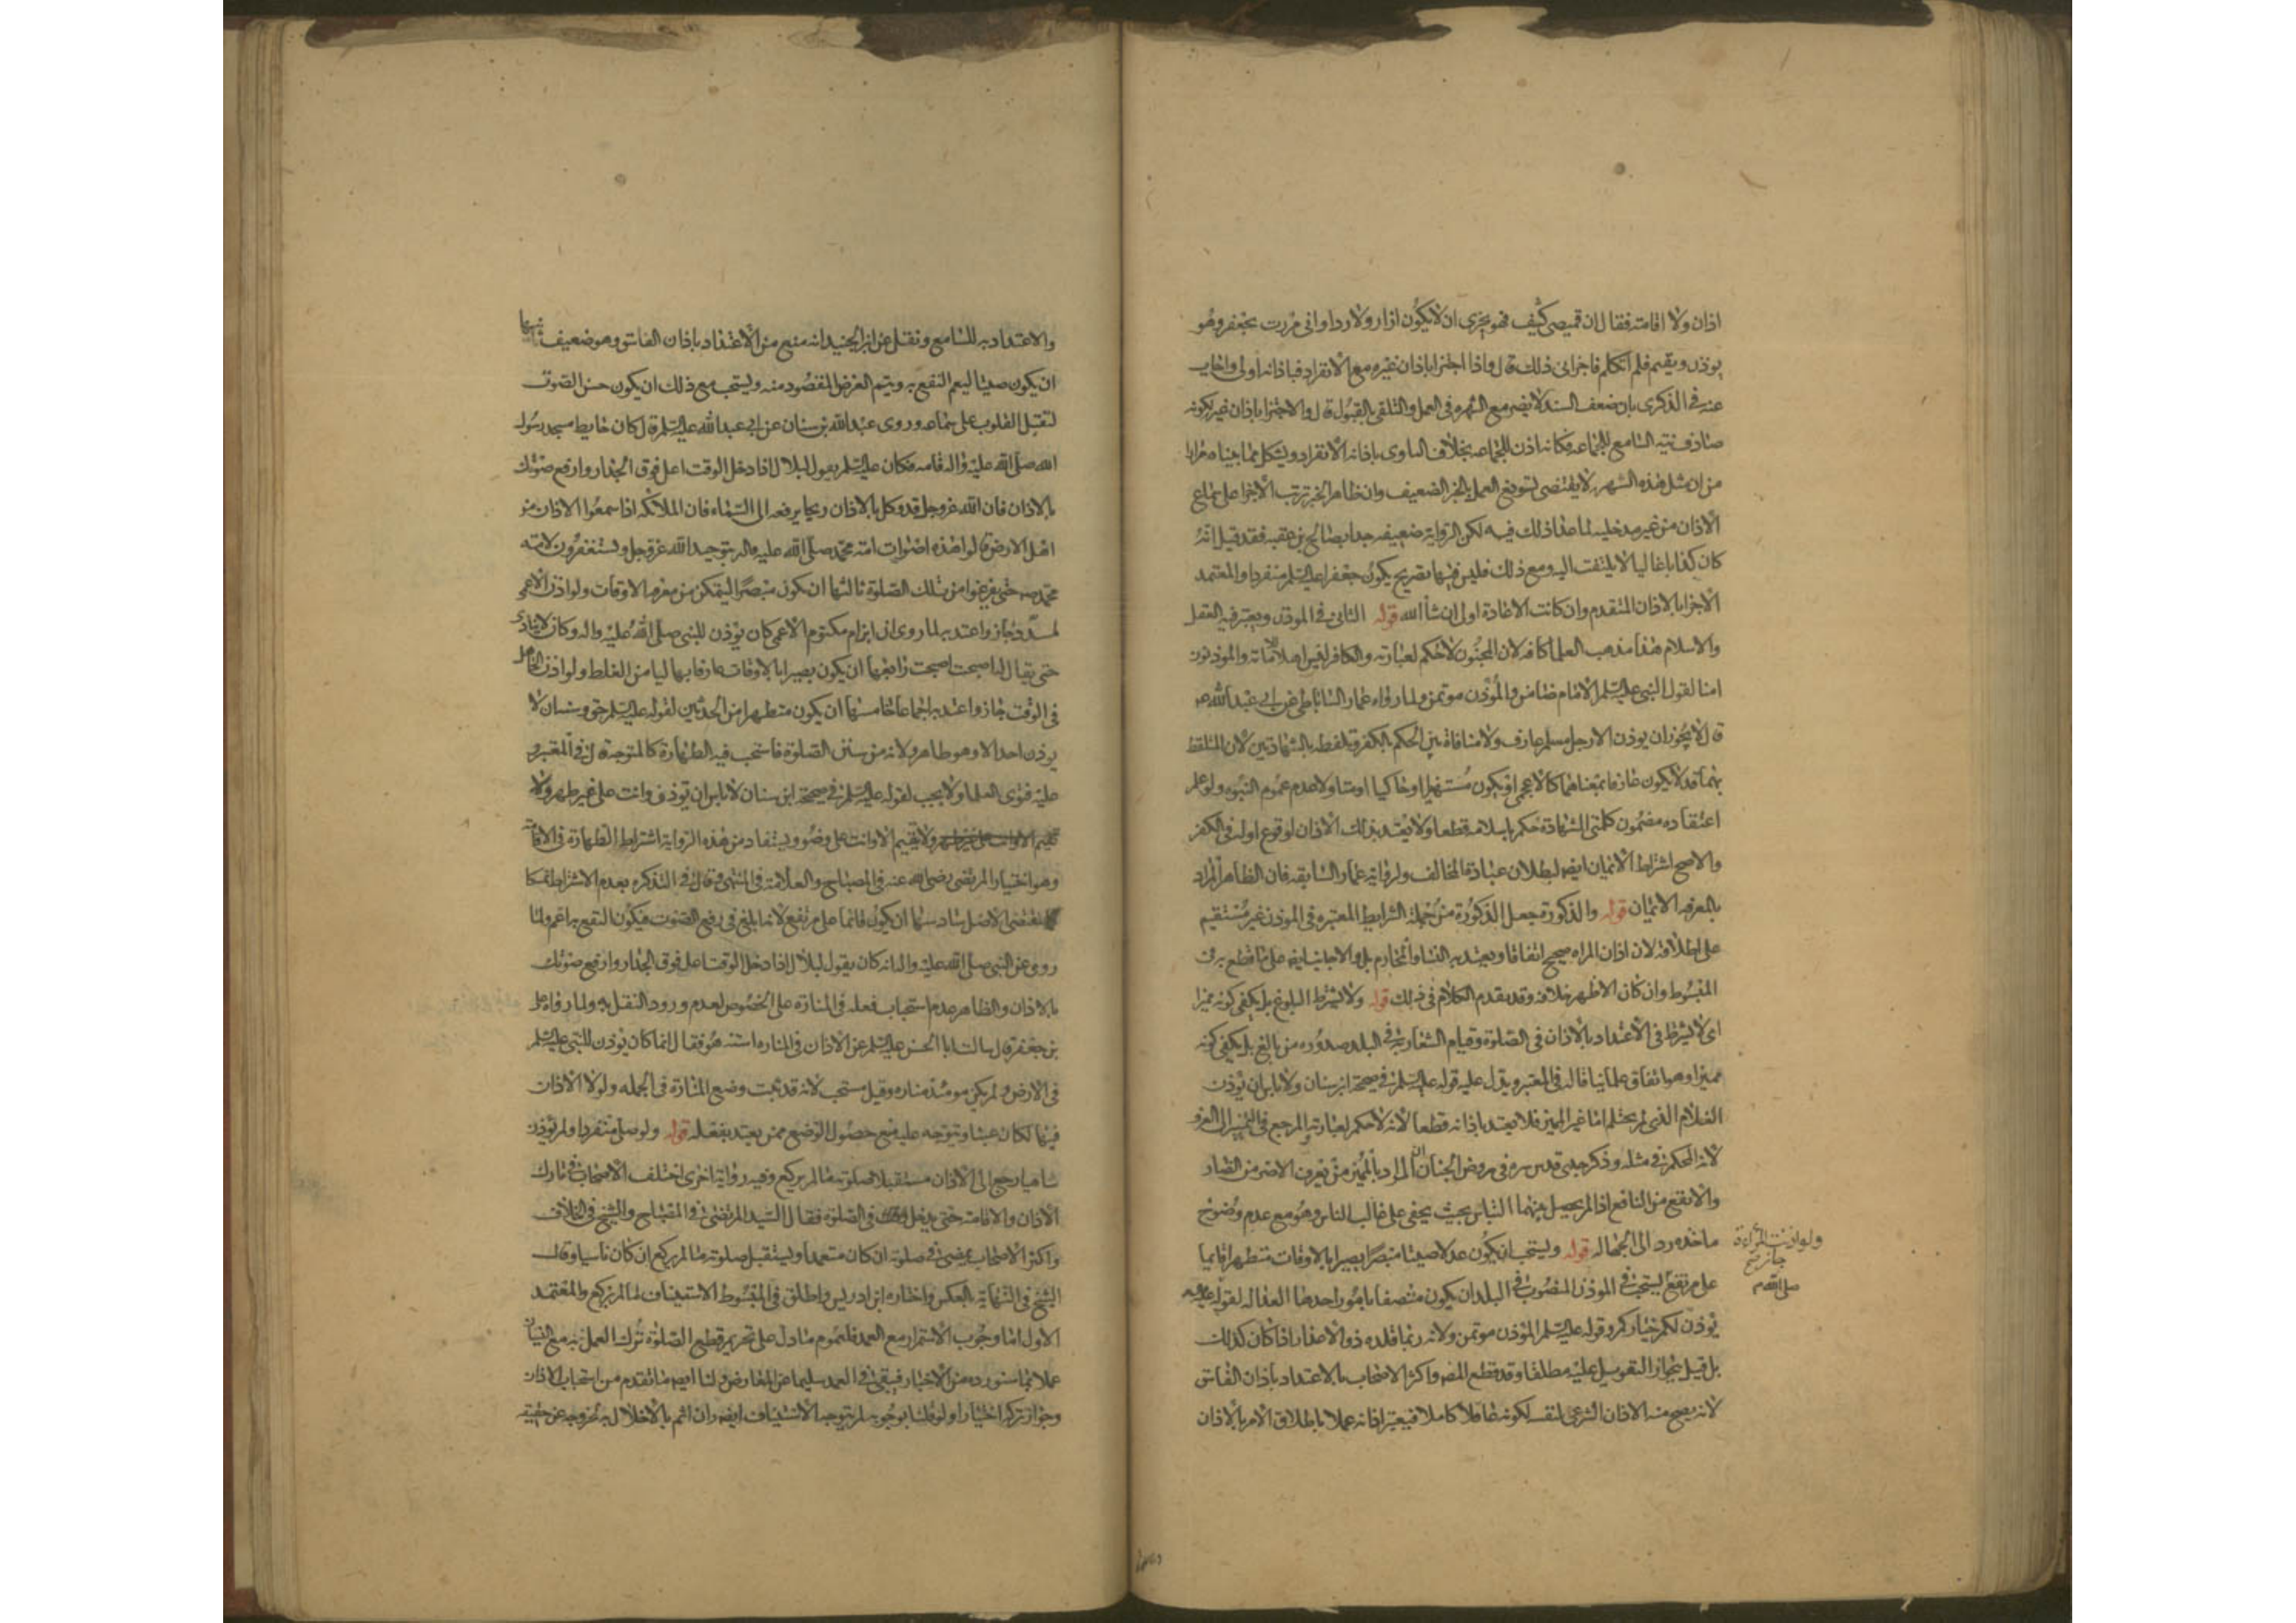 اذان ولا اقامة فقال ان قميصى كثيف فهو يجزى ان لا يكون ازار ولا رداء وانى مررت بجعفر وهو
يوذن ويقيم فلم اتكلم فاجزانى ذلك قال واذا اجتزا باذان غيره مع الانفراد فباذانه اولى واجاب
عنه فى الذكرى بان ضعف السند لا يضر مع الشهره فى العمل والتلقى بالقبول قال والاجتزا باذان غيره لكونه
صادف نيه السامع للجماعه فكانه اذن للجماعه بخلاف الناوى باذانه الانفراد ويشكل بما بيناه مرارا
من ان مثل هذه الشهره لا يقتضى تسويغ العمل بالخبر الضعيف وان ظاهر الخبر ترتب الاجزا على سماع
الاذان من غير مدخليه لما عدا ذلك فيه لكن الرواية ضعيفه جدا بصالح بن عقبه فقد قيل انه
كان كذابا غاليا لا يلتفت اليه ومع ذلك فليس فيها تصريح بكون جعفر عليه السلم منفردا والمعتمد
الاجزا بالاذان المتقدم وان كانت الاعادة اولى ان شا الله قوله الثانى فى الموذن ويعتبر فيه العقل
والاسلام هذا مذهب العلما كافه لان المجنون لا حكم لعبارته والكافر ليس اهلا للامانه والموذنون
امنا لقول النبى عليه السلم الامام ضامن والموذن موتمن ولما رواه عمار الساباطى عن ابى عبد الله ع
قال لا يجوز ان يوذن الا رجل مسلم عارف ولا منافاة بين الحكم بالكفر وتلفظه بالشهادتين لان المتلفظ
بهما قد لا يكون عارفا بمعناهما كالاعجمى او يكون مستهزا او حاكيا او متاولا عدم عموم النبوه ولو علم
اعتقاده مضمون كلمتى الشهادة حكم باسلامه قطعا ولا يعتد بذلك الاذان لوقوع اوله فى الكفر
والاصح اشتراط الايمان ايضا لبطلان عبادة المخالف ولرواية عمار السابقه فان الظاهر ان المراد
بالمعرفه الايمان قوله والذكورة جعل الذكورة من جملة الشرايط المعتبره فى الموذن غير مستقيم
على اطلاقه لان اذان المراه صحيح اتفاقا ويعتد به النسا والمحارم بل والاجانب ايضا على ما قطع به فى
المبسوط وان كان الاظهر خلافه وقد تقدم الكلام فى ذلك قوله ولا يشترط البلوغ بل يكفى كونه مميزا
اى لا يشترط فى الاعتداد بالاذان فى الصلوة وقيام الشعار به فى البلد صدوره من بالغ بل يكفى كونه
مميزا وهو اتفاق علمائنا قاله فى المعتبر ويدل عليه قوله عليه السلم فى صحيحة ابن سنان ولا باس ان يوذن
الغلام الذى لم يحتلم اما غير المميز فلا يعتد باذانه قطعا لانه لا حكم لعبارته والمرجع فى التمييز الى العرف
لانه المحكم فى مثله وذكر جدى قدس سره فى روض الجنان ان المراد بالمميز من يعرف الاضر من الضار
والانفع من النافع اذا لم يحصل بينهما التباس بحيث يخفى على غالب الناس وهو مع عدم وضوح
ماخذه رد الى الجهاله قوله ويستحب ان يكون عدلا صيتا مبصرا بصيرا بالاوقات متطهرا قايما
على مرتفع يستحب فى الموذن المنصوب فى البلد ان يكون متصفا بامور احدها العداله لقوله عليه
يوذن لكم خياركم وقوله عليه السلم الموذن موتمن ولانه ربما قلده ذوا الاعذار اذا كان كذلك
بل قيل بجواز التعويل عليه مطلقا وقد قطع المص واكثر الاصحاب بالاعتداد باذان الفاسق
لانه يصح منه الاذان الشرعى لنفسه لكونه عاقلا كاملا فيعتبر اذانه عملا باطلاق الامر بالاذان
ولو اذنت المرأة
جاز صح
والاعتداد به للسامع ونقل عن ابن الجنيد انه منع من الاعتداد باذان الفاسق وهو ضعيف ثانيها
ان يكون صيتا ليعم النفع به ويتم الغرض المقصود منه ويستحب مع ذلك ان يكون حسن الصوت
لتقبل القلوب على سماعه وروى عبد الله بن سنان عن ابى عبد الله عليه السلم قال كان حايط مسجد رسول
الله صلى الله عليه واله قامه فكان عليه السلم يقول لبلال اذا دخل الوقت اعل فوق الجدار وارفع صوتك
بالاذان فان الله عز وجل قد وكل بالاذان ريحا يرفعه الى السماء فان الملائكه اذا سمعوا الاذان من
اهل الارض قالوا هذه اصوات امة محمد صلى الله عليه واله بتوحيد الله عز وجل ويستغفرون لامة
محمد ص حتى يفرغوا من تلك الصلوة ثالثها ان يكون مبصرا ليتمكن من معرفه الاوقات ولو اذن الاعمى
لمسدد جاز واعتد به لما روى ان ابن ام مكتوم الاعمى كان يوذن للنبى صلى الله عليه واله وكان لا ينادى
حتى يقال له اصبحت اصبحت رابعها ان يكون بصيرا بالاوقات عارفا بها ليامن الغلط ولو اذن الجاهل
فى الوقت جاز واعتد به اجماعا خامسها ان يكون متطهرا من الحدثين لقوله عليه السلم حق وسنة ان لا
يوذن احد الا وهو طاهر ولانه من سنن الصلوة فاستحب فيه الطهارة كالتوجه قال فى المعتبر و
عليه فتوى العلما ولا يجب لقوله عليه السلم فى صحيحة ابن سنان لا باس ان توذن وانت على غير طهر ولا
ولا تقيم الا وانت على وضو ويستفاد من هذه الرواية اشتراط الطهارة فى الاقامة
وهو اختيار المرتضى رضى الله عنه فى المصباح والعلامة فى المنتهى وقال فى التذكره بعدم الاشتراط تمسكا
بمقتضى الاصل سادسها ان يكون قائما على مرتفع لانه ابلغ فى رفع الصوت فيكون النفع به اعم ولما
روى عن النبى صلى الله عليه واله انه كان يقول لبلال اذا دخل الوقت اعل فوق الجدار وارفع صوتك
بالاذان والظاهر عدم استحباب فعله فى المنارة على الخصوص لعدم ورود النقل به ولما رواه على
بن جعفر قال سالت ابا الحسن عليه السلم عن الاذان فى المناره اسنة هو فقال انما كان يوذن للنبى عليه السلم
فى الارض ولم يكن يومئذ مناره وقيل مستحب لانه قد ثبت وضع المنارة فى الجمله ولولا الاذان
فيها لكان عبثا ويتوجه عليه منع حصول الوضع ممن يعتد بفعله قوله ولو صلى منفردا ولم يوذن
ساهيا رجع الى الاذان مستقبلا صلوته ما لم يركع وفيه رواية اخرى اختلف الاصحاب فى تارك
الاذان والاقامة حتى يدخل فى الصلوة فقال السيد المرتضى فى المصباح والشيخ فى الخلاف
واكثر الاصحاب يمضى فى صلوته ان كان متعمدا ويستقبل صلوته ما لم يركع ان كان ناسيا وقال
الشيخ فى النهاية بالعكس واختاره ابن ادريس واطلق فى المبسوط الاستيناف ما لم يركع والمعتمد
الاول اما وجوب الاستمرار مع العمد فلعموم ما دل على تحريم قطع الصلوة ترك العمل به مع النسيان
عملا بما سنورده من الاخبار فيبقى فى العمد سليما عن المعارض ولنا ايضا ما تقدم من استحباب الاذان
وجواز تركه اختيارا ولو قلنا بوجوبه لم يتوجه الاستيناف ايضا وان اثم بالاخلال به لخروجه عن حقيقة